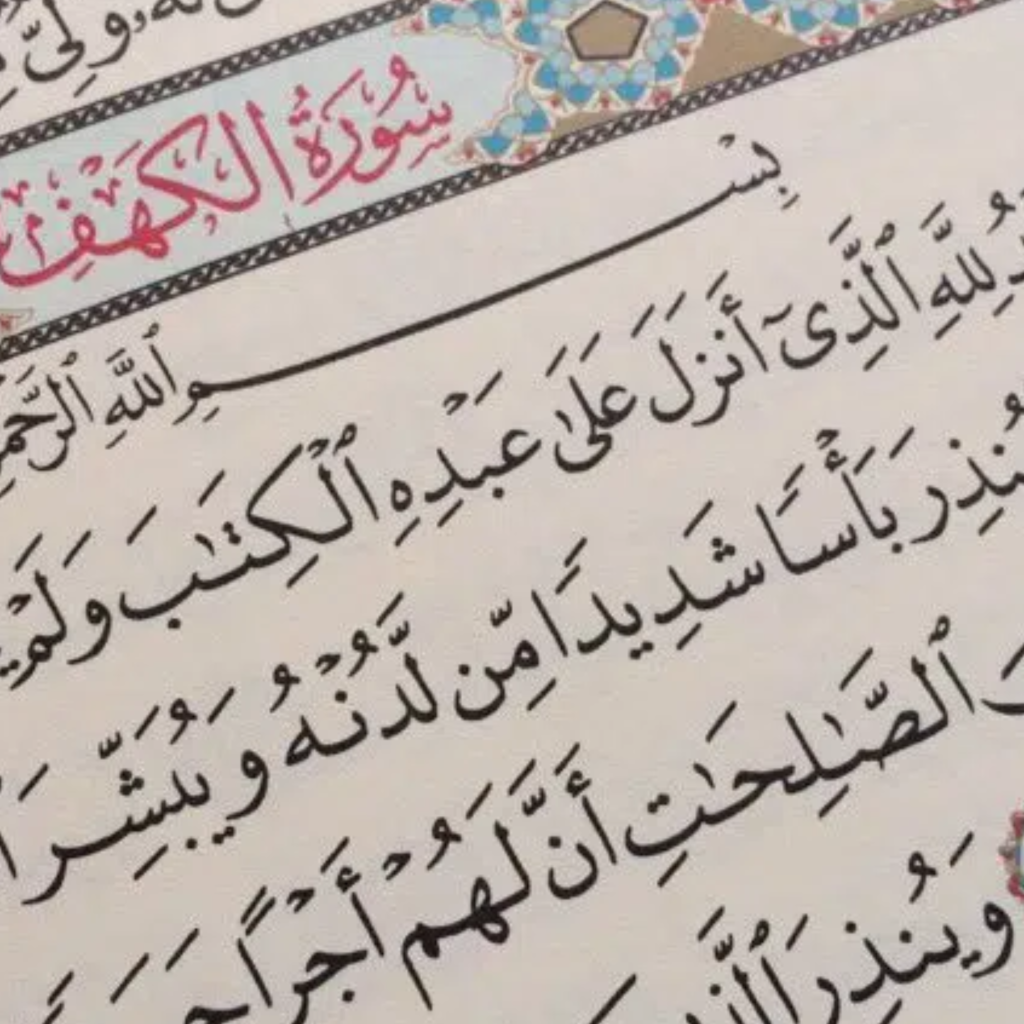 سُورَةُ الكَهْفِ
بِسْمِ ٱللَّهِ ٱلرَّحْمَ
لِلَّهِ ٱلَّذِىٓ أَنزَلَ عَلَىٰ عَبْدِهِ ٱلْكِتَٰبَ وَلَمْ
بَأْسًا شَدِيدًا مِّن لَّدُنْهُ وَيُبَشِّرَ
ٱلصَّٰلِحَٰتِ أَنَّ لَهُمْ أَجْرًا
وَيُنذِرَ